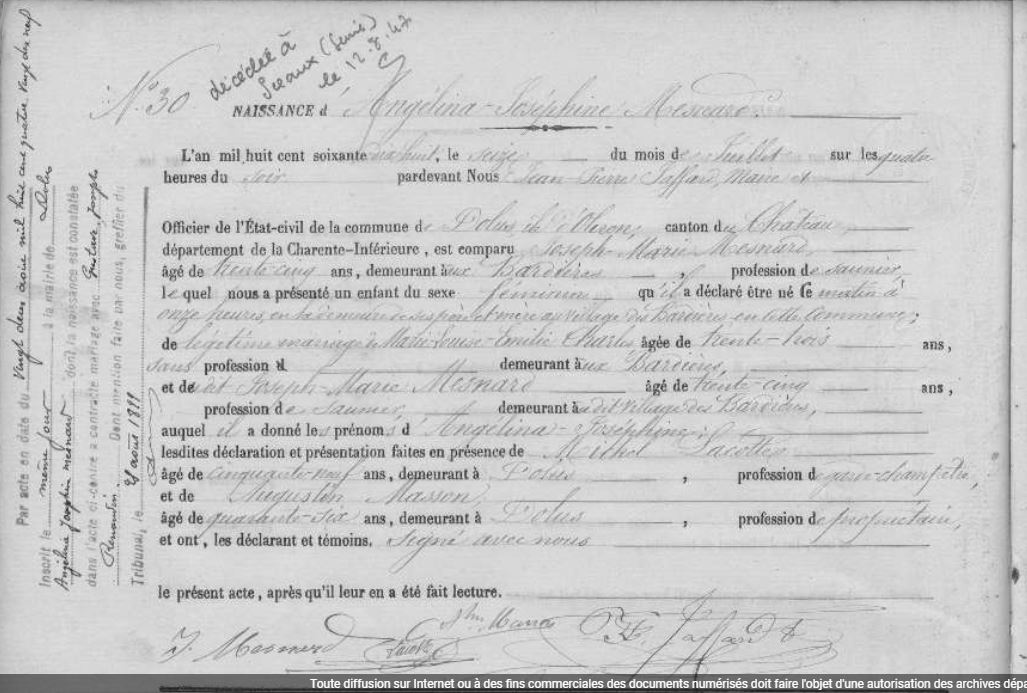 décédée à
Sceaux (Seine)
le 12.8.47
N.° 30
NAISSANCE d'Angélina-Joséphine Mesnard
L'an mil huit cent soixante dix huit, le seize du mois de Juillet sur les quatre
heures du soir pardevant Nous Jean-Pierre Jaffard, Maire et
Officier de l'État-civil de la commune de Dolus île d'Oleron, canton du Château,
département de la Charente-Inférieure, est comparu Joseph-Marie Mesnard,
âgé de trente-cinq ans, demeurant aux Bardières, profession de saunier,
lequel nous a présenté un enfant du sexe féminin, qu'il a déclaré être né ce matin à
onze heures, en la demeure de ses père et mère au village des Bardières, en cette commune;
de légitime mariage de Marie-Louise-Emilie Charles âgée de trente-trois ans,
sans profession d demeurant aux Bardières,
et dudit Joseph-Marie Mesnard âgé de trente-cinq ans,
profession de Saunier, demeurant audit village des Bardières,
auquel il a donné les prénoms d'Angélina-Joséphine;
lesdites déclaration et présentation faites en présence de Michel Lacotte
âgé de cinquante-neuf ans, demeurant à Dolus, profession de garde-champêtre,
et de Augustin Masson,
âgé de quarante-six ans, demeurant à Dolus, profession de propriétaire,
et ont, les déclarant et témoins, Signé avec nous
le présent acte, après qu'il leur en a été fait lecture.
J. Mesnard
Par acte en date du vingt deux août mil huit cent quatre vingt dix neuf
Inscrit le même jour à la mairie de Dolus
Angélina Joséphine Mesnard dont la naissance est constatée
dans l'acte ci-contre a contracté mariage avec Gustave, Joseph
Renaudin. Dont mention faite par nous, greffier du
Tribunal, le août 1899
Toute diffusion sur Internet ou à des fins commerciales des documents numérisés doit faire l'objet d'une autorisation des archives dépa